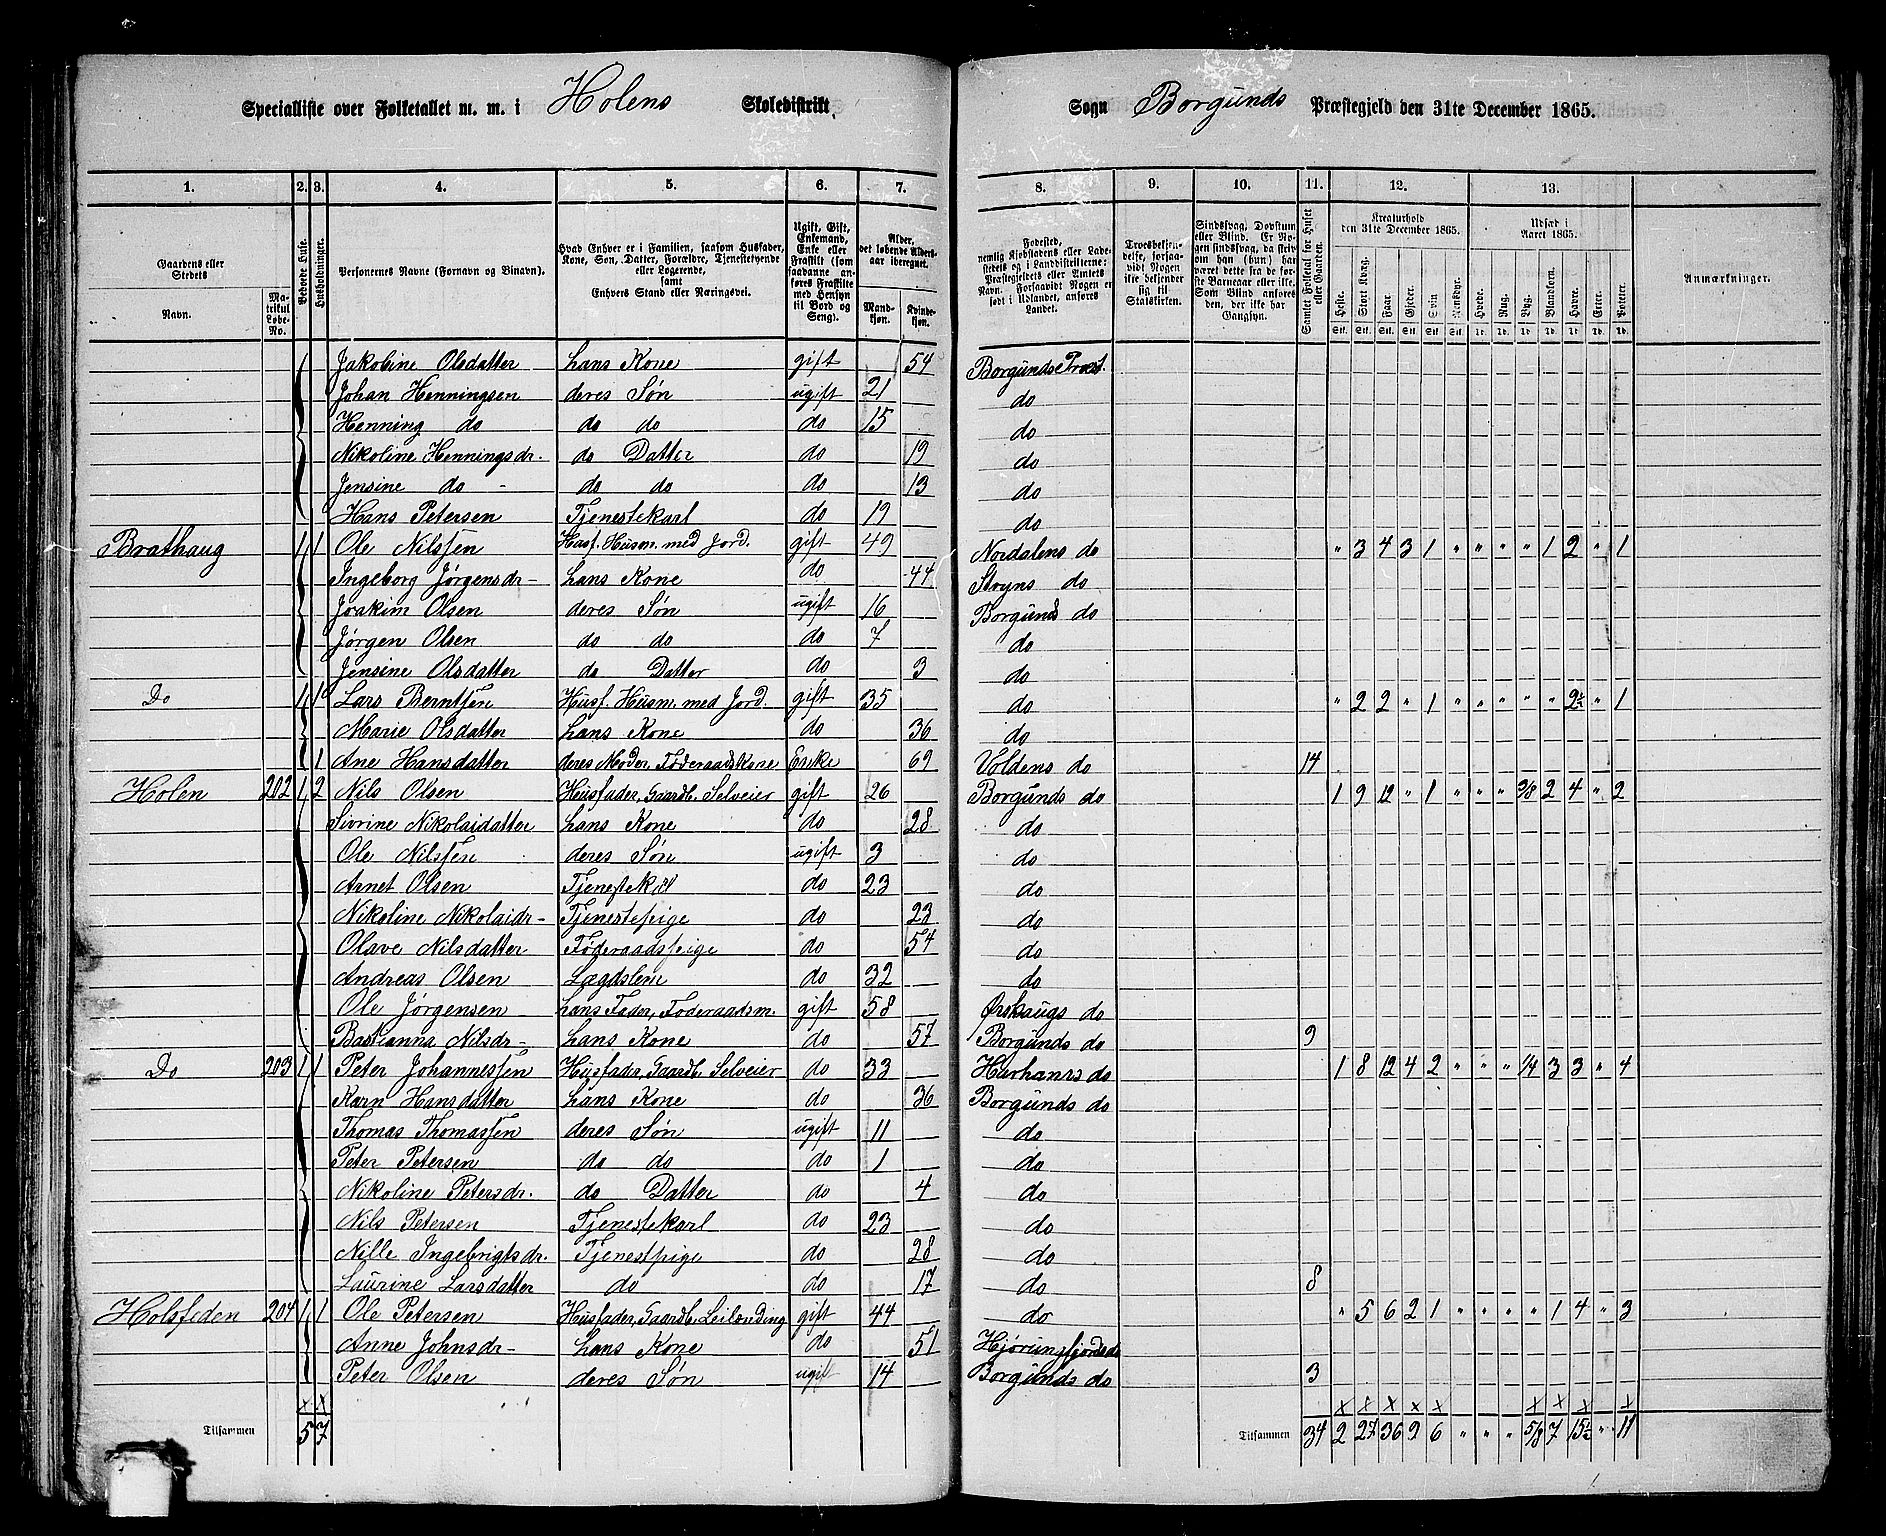 Specialliste over Folketallet m. m. i Holens Skoledistrikt,
Sogn Borgunds Præstegjeld den 31te December 1865.
1. 2. 3. 4. 5. 6. 7. 8. 9. 10. 11. 12. 13.
Gaardens eller Stedets Navn. Matrikul Løbe-No.
Beboede Huse.
Husholdninger.
Personernes Navne (Fornavn og Binavn).
Hvad Enhver er i Familien, saasom Husfader, Kone, Søn, Datter, Forældre, Tjenestetyende eller Logerende, samt Enhvers Stand eller Næringsvei.
Ugift, Gift, Enkemand, Enke eller Fraskilt (som saadanne anføres Fraskilte med Hensyn til Bord og Seng).
Alder, det løbende Aldersaar iberegnet. Mandkjøn. Kvindekjøn.
Fødested, nemlig Kjøbstadens eller Ladestedets og i Landdistrikterne: Præstegjeldets eller Amtets Navn. Forsaavidt Nogen er født i Udlandet, anføres Landet.
Troesbekjendelse, forsaavidt Nogen ikke bekjender sig til Statskirken.
Sindssvag, Døvstum eller Blind. Er Nogen sindssvag, da skrives om han (hun) har været dette fra de første Barneaar eller ikke. Som Blind anføres den, der ikke har Gangsyn.
Samlet Folketal for Huset eller Gaarden.
Kreaturhold den 31te December 1865. Heste. Stort Kvæg. Faar. Gjeder. Svin. Rensdyr.
Udsæd i Aaret 1865. Hvede. Rug. Byg. Blandkorn. Havre. Erter. Poteter.
Anmærkninger.
Jakobine Olsdatter hans Kone gift 54 Borgunds Præst.
Johan Henningsen deres Søn ugift 21 do
Henning do do do do 15 do
Nikoline Henningsdr. do Datter do 19 do
Jensine do - do do do 13 do
Hans Petersen Tjenestekarl do 19 do
Brathaug 1 1 Ole Nilssen Husf. Husm. med Jord. gift 49 Nordalens do " 3 4 3 1 " " " " 1 2 " 1
Ingeborg Jørgensdr- hans Kone do 44 Stryns do
Joakim Olsen deres Søn ugift 16 Borgunds do
Jørgen Olsen do do do 7 do
Jensine Olsdatter do Datter do 3 do
Do 1 1 Lars Berntsen Husf. Husm. med Jord. gift 35 do " 2 2 " 1 " " " " " 2½ " 1
Marie Olsdatter hans Kone do 36 do
1 Ane Hansdatter deres Moder, Føderaadskone Enke 69 Voldens do 14
Holen 202 1 2 Nils Olsen Husfader, Gaardb. Selveier gift 26 Borgunds do 1 9 12 " 1 " " " 3/8 2 4 " 2
Sivrine Nikolaidatter hans Kone do 28 do
Ole Nilssen deres Søn ugift 3 do
Arnet Olsen Tjenestekarl do 23 do
Nikoline Nikolaidr- Tjenestepige do 23 do
Olave Nilsdatter Føderaadspige do 54 do
Andreas Olsen Lægdslem do 32 do
Ole Jørgensen hans Fader, Føderaadsm. gift 58 Ørskaugs do
Bastianna Nilsdr- hans Kone do 57 Borgunds do 9
Do 203 1 1 Peter Johannessen Husfader, Gaardb. Selveier do 33 Harhams do 1 8 12 4 2 " " " 1/4 3 3 " 4
Karn Hansdatter hans Kone do 36 Borgunds do
Thomas Thomassen deres Søn ugift 11 do
Peter Petersen do do do 1 do
Nikoline Petersdr. do Datter do 4 do
Nils Petersen Tjenestekarl do 23 do
Nille Ingebrigtsdr. Tjenestpige do 28 do
Laurine Larsdatter do do 17 do 8
Holsfeden 204 1 1 Ole Petersen Husfader, Gaardb. Leilænding gift 44 do " 5 6 2 1 " " " " 1 4 " 3
Anne Johnsdr- hans Kone do 51 Hjørungfjords do
Peter Olsen deres Søn ugift 14 Borgunds do 3
Tilsammen 5 7 Tilsammen 34 2 27 36 9 6 " " " 5/8 7 15½ " 11